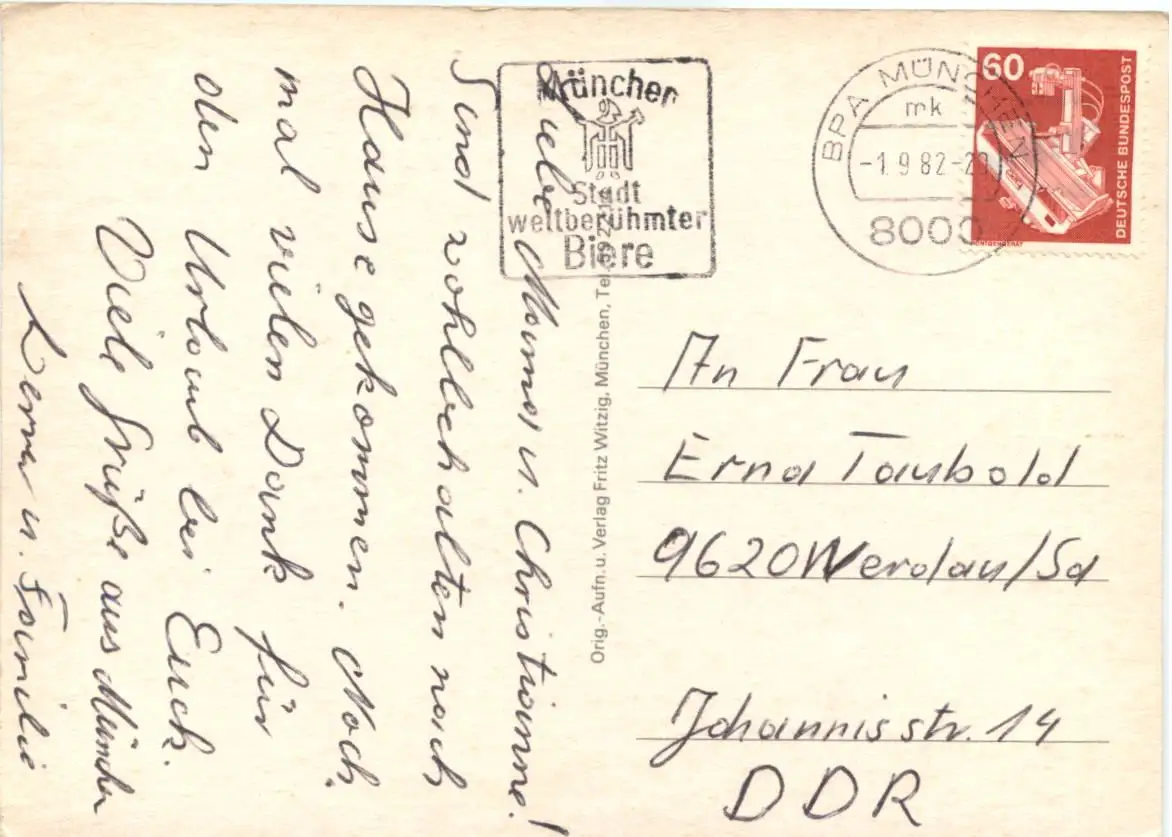 Liebe Mama u. Christianne!
Sind wohlbehalten nach
Hause gekommen. Noch
mal vielen Dank für
den Urlaub bei Euch.
Viele Grüße aus München
u. Familie
München
Stadt
weltberühmter
Biere
BPA MÜNCHEN
mk
-1.9.82-20
8000
60
DEUTSCHE BUNDESPOST
RÖNTGENGERÄT
Orig.-Aufn. u. Verlag Fritz Witzig, München, Tel.
An Frau
Erna Taubold
9620 Werdau/Sa
Johannisstr. 14
DDR